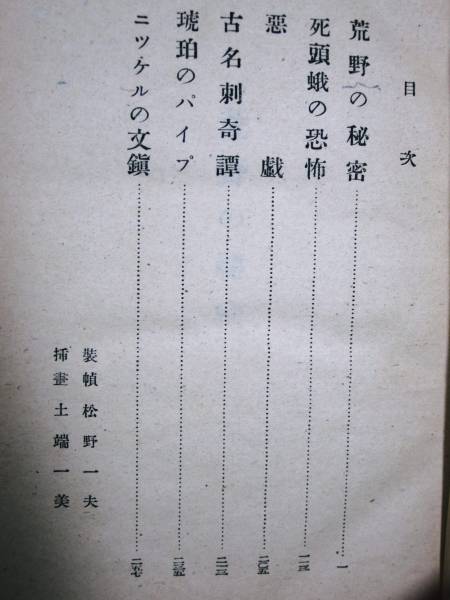 目次
荒野の秘密……一
死頭蛾の恐怖……
惡戯……
古名刺奇譚……
琥珀のパイプ……
ニツケルの文鎭……
裝幀 松野一夫
揷畫 土端一美